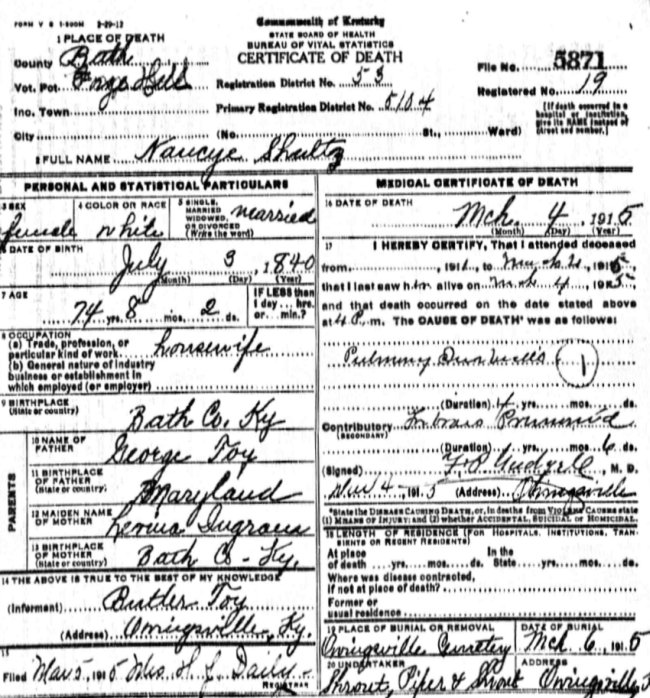 FORM V S 1-500M 2-29-12
Commonwealth of Kentucky
STATE BOARD OF HEALTH
BUREAU OF VITAL STATISTICS
CERTIFICATE OF DEATH
1 PLACE OF DEATH
County Bath
Vot. Pct. Forge Hill
Ino. Town
City (No. St., Ward)
Registration District No. 53
Primary Registration District No. 5104
File No. 5871
Registered No. 19
[If death occurred in a hospital or institution, give its NAME instead of street and number.]
2 FULL NAME Nancye Shultz
PERSONAL AND STATISTICAL PARTICULARS
3 SEX female
4 COLOR OR RACE white
5 SINGLE, MARRIED WIDOWED, OR DIVORCED (Write the word) married
6 DATE OF BIRTH
July 3, 1840
(Month) (Day) (Year)
7 AGE
74 yrs. 8 mos. 2 ds.
IF LESS than 1 day... hrs. or... min.?
8 OCCUPATION
(a) Trade, profession, or
particular kind of work housewife
(b) General nature of industry
business or establishment in
which employed (or employer)
9 BIRTHPLACE
(State or country)
Bath Co. Ky
PARENTS
10 NAME OF FATHER George Toy
11 BIRTHPLACE OF FATHER (State or country) Maryland
12 MAIDEN NAME OF MOTHER
13 BIRTHPLACE OF MOTHER (State or country) Bath Co - Ky.
14 THE ABOVE IS TRUE TO THE BEST OF MY KNOWLEDGE
(Informant) Butler Toy
(Address) Owingsville, Ky.
15
Filed Mar 5, 1915 Mrs. H. J. Daily
REGISTRAR
MEDICAL CERTIFICATE OF DEATH
16 DATE OF DEATH
Mch. 4, 1915
(Month) (Day) (Year)
17 I HEREBY CERTIFY, That I attended deceased
from, 191, to, 1915
that I last saw h alive on, 1915
and that death occurred on the date stated above
at 4 P. m. The CAUSE OF DEATH* was as follows:
1
(Duration) yrs. mos. ds.
Contributory
(SECONDARY)
(Duration) yrs. mos. 6 ds.
(Signed) M. D.
4, 1915 (Address) Owingsville
*State the DISEASE CAUSING DEATH, or, in deaths from VIOLENT CAUSES state
(1) MEANS OF INJURY; and (2) whether ACCIDENTAL, SUICIDAL or HOMICIDAL.
18 LENGTH OF RESIDENCE (FOR HOSPITALS, INSTITUTIONS, TRANSIENTS OR RECENT RESIDENTS)
At place of death yrs. mos. ds. In the State yrs. mos. ds.
Where was disease contracted,
if not at place of death?
Former or
usual residence
19 PLACE OF BURIAL OR REMOVAL
Owingsville Cemetery
DATE OF BURIAL
Mch 6, 1915
20 UNDERTAKER
Shrout, Piper & Shrout
ADDRESS
Owingsville